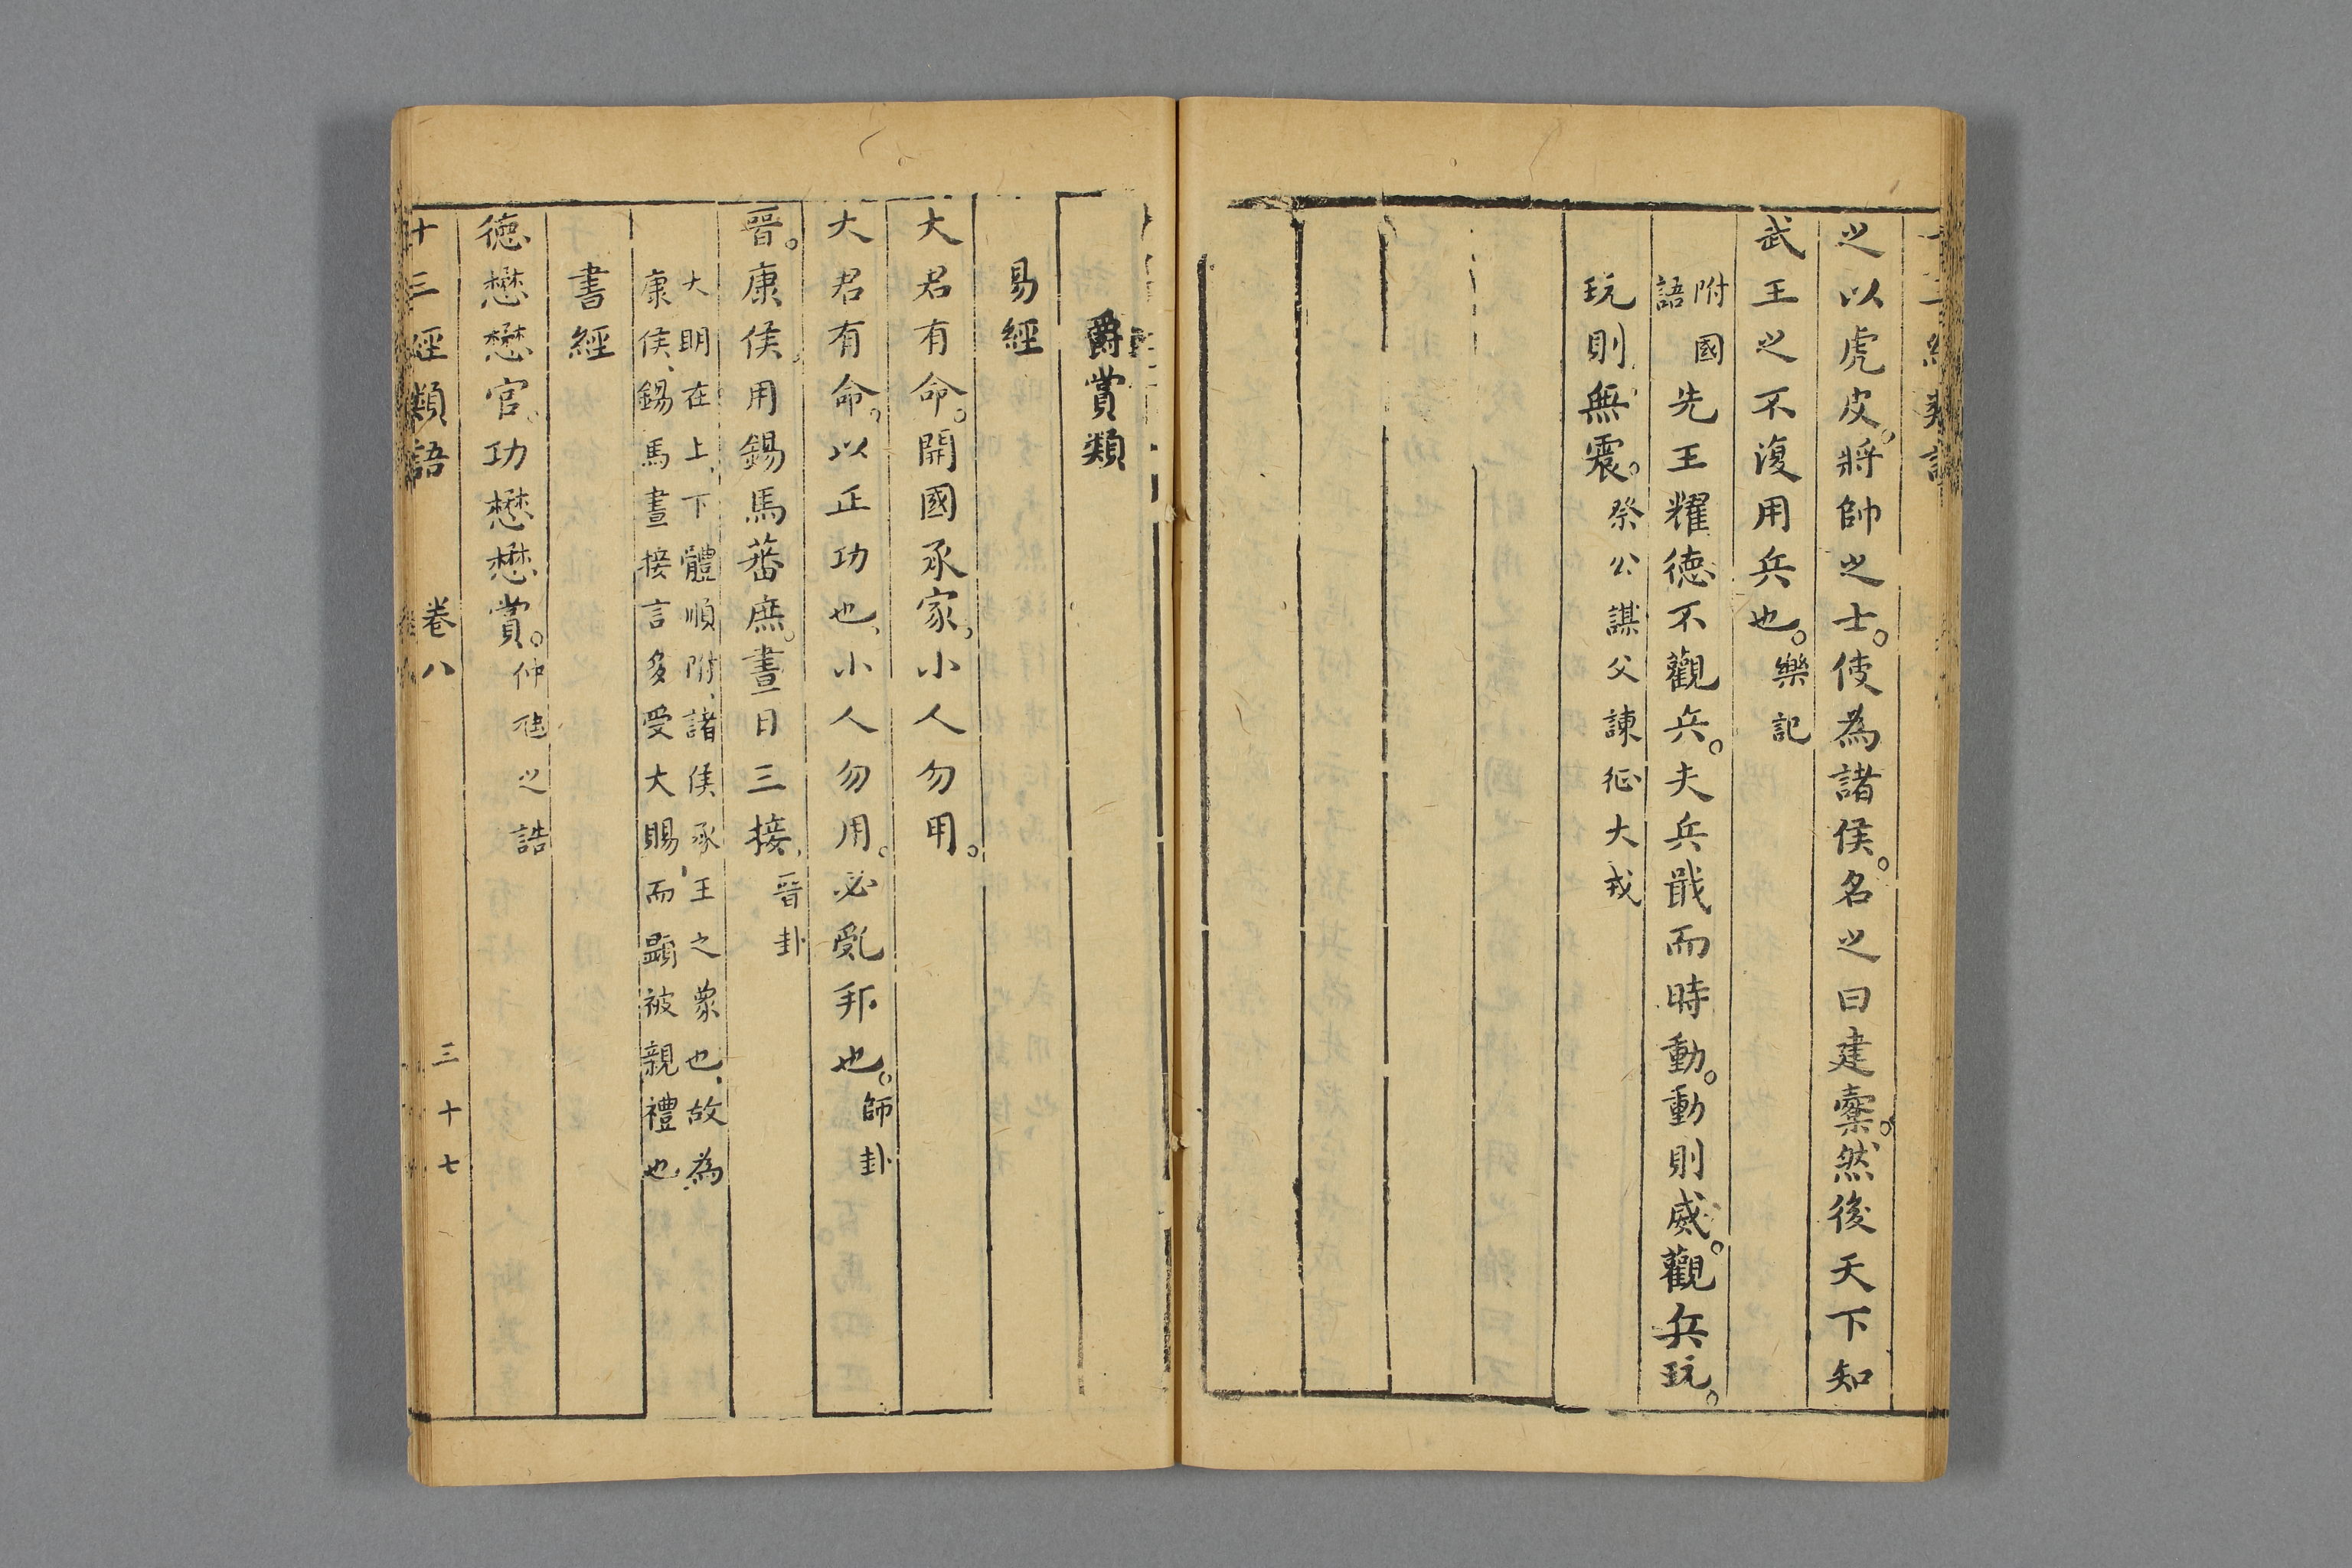 之以虎皮。將帥之士。使為諸侯。名之曰建櫜。然後天下知
武王之不復用兵也。樂記
附國語
先王耀德不觀兵。夫兵戢而時動。動則威。觀兵玩。
玩則無震。祭公謀父諫征犬戎
爵賞類
易經
大君有命。開國承家。小人勿用。
大君有命。以正功也、小人勿用。必亂邦也。師卦
晉。康侯、用錫馬蕃庶。晝日三接、晉卦
大明在上、下體順附、諸侯承王之象也、故為
康侯、錫馬晝接言多受大賜、而顯被親禮也
書經
德懋懋官、功懋懋賞。仲虺之誥
十三經類語 卷八 三十七